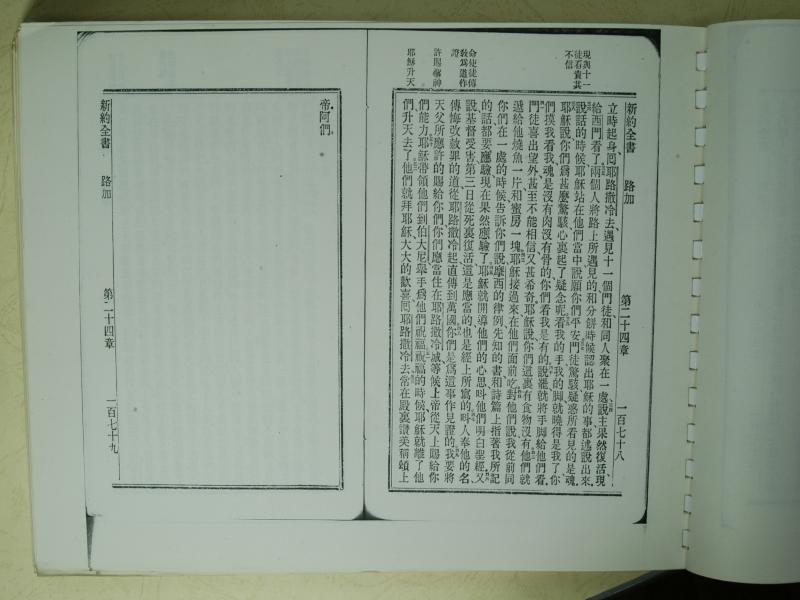 現與十一
徒看責其
不信
命使徒傳
敎爲道作
證
許賜聖神
耶穌升天
新約全書 路加 第二十四章 一百七十八
立時起身、囘耶路撒冷去、遇見十一個門徒和同人聚在一處、說主果然復活、現
給西門看了、兩個人將路上所遇見的、和分餅時候認出耶穌的事、都述說出來、
說話的時候、耶穌站在他們當中、說願你們平安、門徒驚駭疑惑、所看見的是魂、
耶穌說、你們爲甚麽驚駭、心裏起了疑念呢、看我的手、我的脚、就曉得是我了、你
們摸我看我、魂是沒有肉沒有骨的、你們看我是有的、說罷、就將手脚給他們看、
門徒喜出望外、甚至不能相信、又甚希奇、耶穌說、你們這裏有食物沒有、他們就
遞給他燒魚一片、和蜜房一塊、耶穌接過來、在他們面前吃、對他們說、我從前同
你們在一處的時候、告訴你們說、摩西的律例、先知的書、和詩篇上、指著我所記
的話、都要應驗、現在果然應驗了、耶穌就開導他們的心思、呌他們明白聖經、又
說基督受害、第三日從死裏復活、這是應當的、也是經上所寫的、呌人奉他的名、
傳悔改赦罪的道、從耶路撒冷起、直傳到萬國、你們是爲這事作見證的、我要將
天父所應許的賜給你們、你們應當住在耶路撒冷城、等候上帝從天上賜給你
們能力、耶穌帶領他們到伯大尼、舉手爲他們祝福、祝福的時候、耶穌就離了他
們升天去了、他們就拜耶穌、大大的歡喜、囘耶路撒冷去、常在殿裏讚美稱頌上
帝、阿們。
新約全書 路加 第二十四章 一百七十九